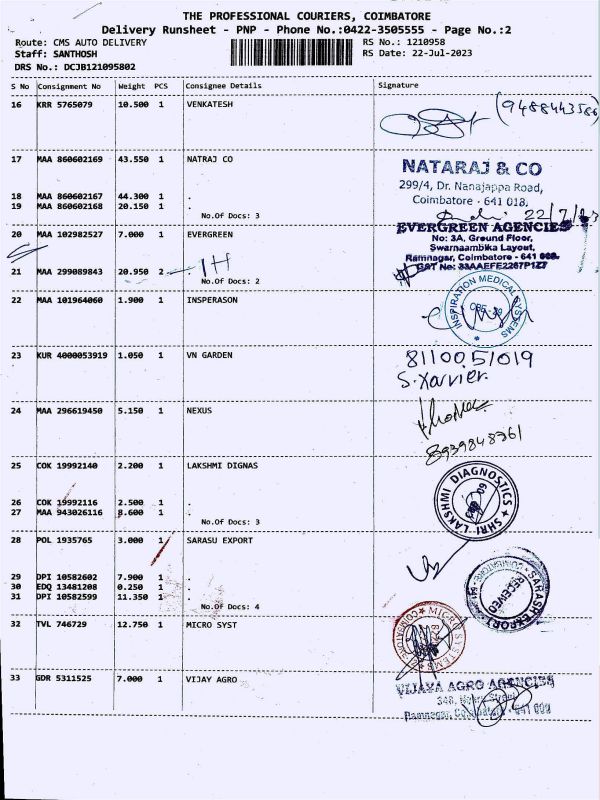 THE PROFESSIONAL COURIERS, COIMBATORE
Delivery Runsheet - PNP - Phone No.:0422-3505555 - Page No.:2
Route: CMS AUTO DELIVERY RS No.: 1210958
Staff: SANTHOSH RS Date: 22-Jul-2023
DRS No.: DCJB121095802
S No Consignment No Weight PCS Consignee Details Signature
16 KRR 5765079 10.500 1 VENKATESH
(9488443586
17 MAA 860602169 43.550 1 NATRAJ CO
NATARAJ & CO
299/4, Dr. Nanajappa Road,
Coimbatore - 641 018.
18 MAA 860602167 44.300 1 .
19 MAA 860602168 20.150 1 .
No.Of Docs: 3
22/7/23
20 MAA 102982527 7.000 1 EVERGREEN
EVERGREEN AGENCIES
No: 3A, Ground Floor,
Swarnaambika Layout,
Ramnagar, Coimbatore - 641 009.
GST No: 33AAEFE2267P1Z7
21 MAA 299089843 20.950 2 .
No.Of Docs: 2
22 MAA 101964060 1.900 1 INSPERASON
INSPIRATION MEDICAL SYSTEMS
23 KUR 4000053919 1.050 1 VN GARDEN
8110051019
S.Xavier.
24 MAA 296619450 5.150 1 NEXUS
8939848361
25 COK 19992140 2.200 1 LAKSHMI DIGNAS
SHRI LAKSHMI DIAGNOSTICS
26 COK 19992116 2.500 1 .
27 MAA 943026116 8.600 1 .
No.Of Docs: 3
28 POL 1935765 3.000 1 SARASU EXPORT
SARASU EXPORT
COIMBATORE
RECEIVED
29 DPI 10582602 7.900 1 .
30 EDQ 13481208 0.250 1 .
31 DPI 10582599 11.350 1 .
No.Of Docs: 4
32 TVL 746729 12.750 1 MICRO SYST
MICRO SYSTEMS
COIMBATORE
33 GDR 5311525 7.000 1 VIJAY AGRO
VIJAYA AGRO AGENCIES
Ramnagar, Coimbatore - 641 009